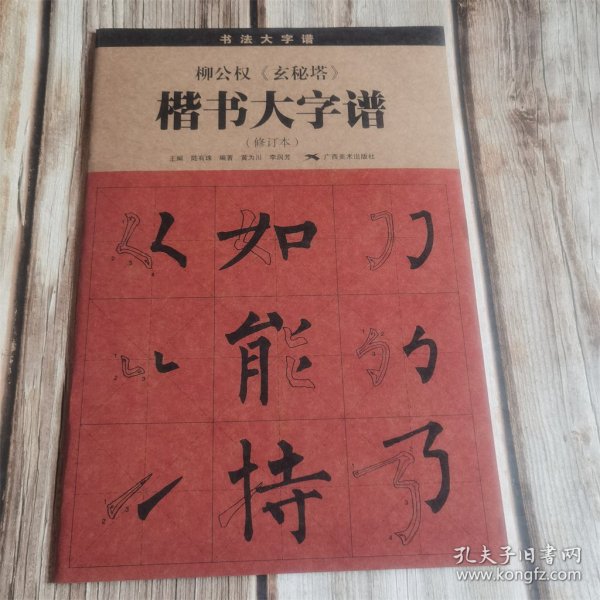 书法大字谱
柳公权《玄秘塔》
楷书大字谱
（修订本）
主编 陆有珠 编著 黄为川 李润芳 广西美术出版社
如
能
持
孔夫子旧书网
www.kongfz.com